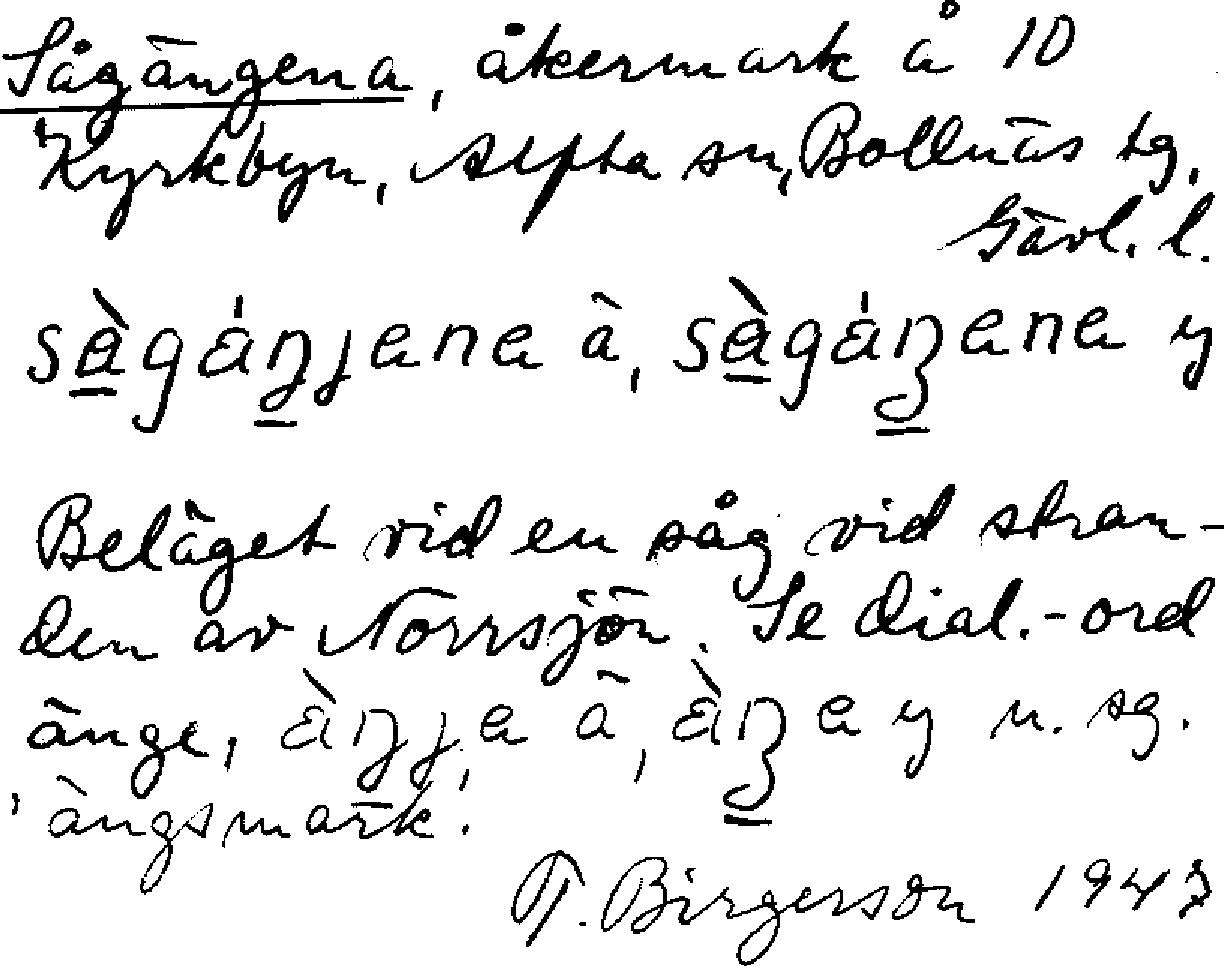 Sågängena, åkermark å 10
Kyrkbyn, Alfta sn, Bollnäs tg,
Gävl. l.
sàgáŋjena ä, sàgáŋena y
Beläget vid en såg vid stran-
den av Norrsjön. Se dial.-ord
änge, àŋje ä, àŋe y n. sg.
'ängsmark'.
T. Birgerson 1947